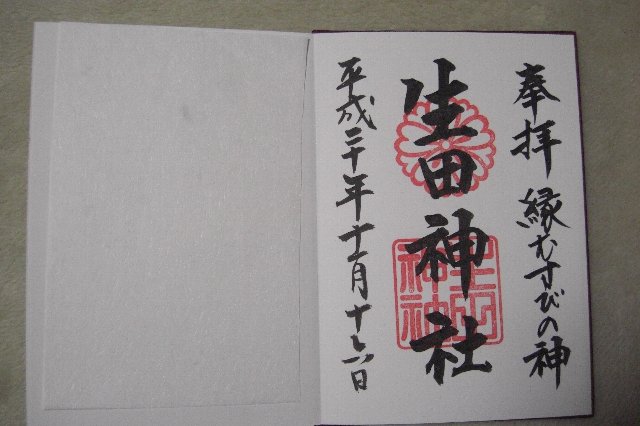 奉拝 縁むすびの神
生田神社
平成二十年十一月十六日